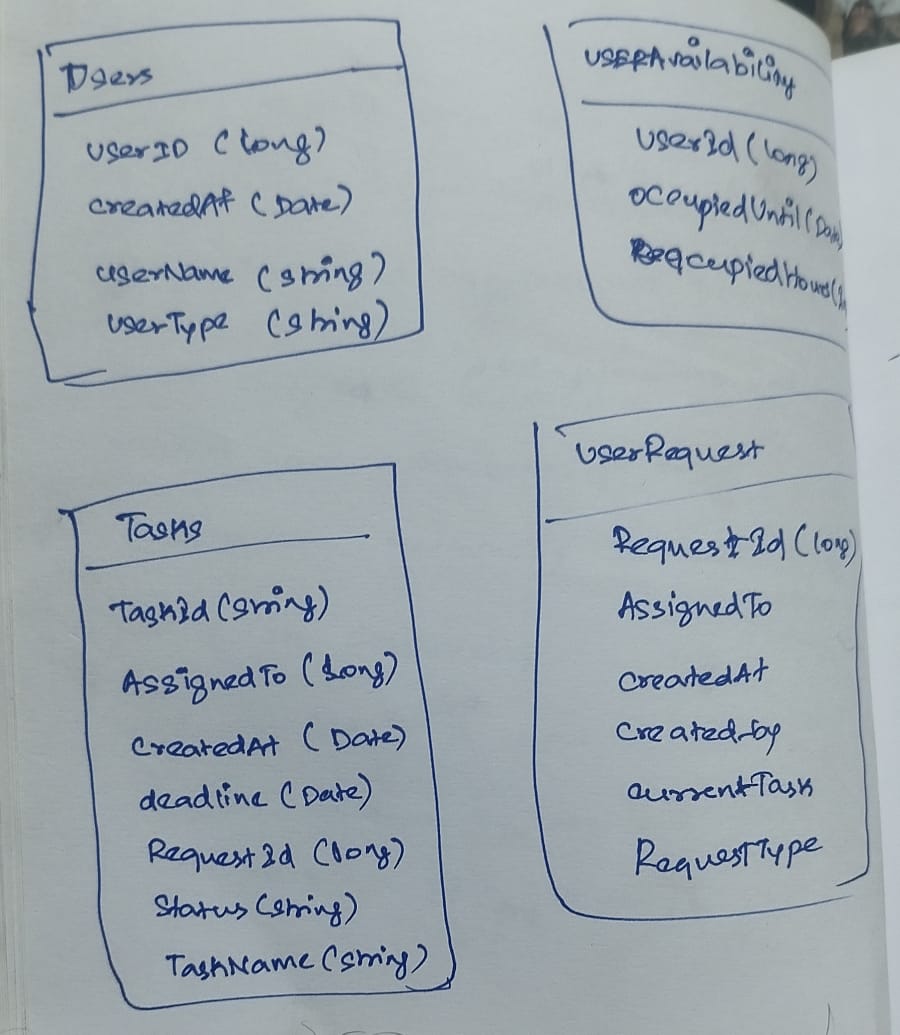 Users
UserID (long)
createdAt (Date)
userName (string)
userType (string)
USERAvailability
UserId (long)
OccupiedUntil (Date)
Tasks
TaskId (string)
AssignedTo (Long)
CreatedAt (Date)
deadline (Date)
RequestId (long)
Status (string)
TaskName (string)
UserRequest
RequestId (long)
AssignedTo
CreatedAt
Createdby
currentTask
RequestType